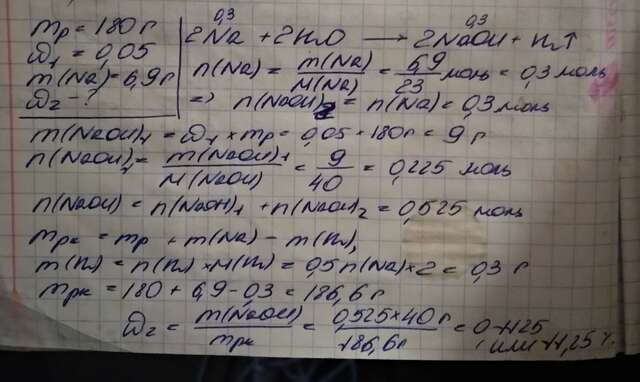 mр = 180 г
ω₁ = 0,05
m(Na) = 6,9 г
ω₂ - ?
0,3 0,3
2Na + 2H₂O → 2NaOH + H₂↑
n(Na) = m(Na)/M(Na) = 6,9/23 моль = 0,3 моль
=> n(NaOH)₂ = n(Na) = 0,3 моль
m(NaOH)₁ = ω₁ × mр = 0,05 × 180г = 9 г
n(NaOH)₁ = m(NaOH)₁/M(NaOH) = 9/40 = 0,225 моль
n(NaOH) = n(NaOH)₁ + n(NaOH)₂ = 0,525 моль
mрк = mр + m(Na) - m(H₂),
m(H₂) = n(H₂) × M(H₂) = 0,5n(Na) × 2 = 0,3 г
mрк = 180 + 6,9 - 0,3 = 186,6 г
ω₂ = m(NaOH)/mрк = 0,525×40 г/186,6г = 0,1125
или 11,25 %